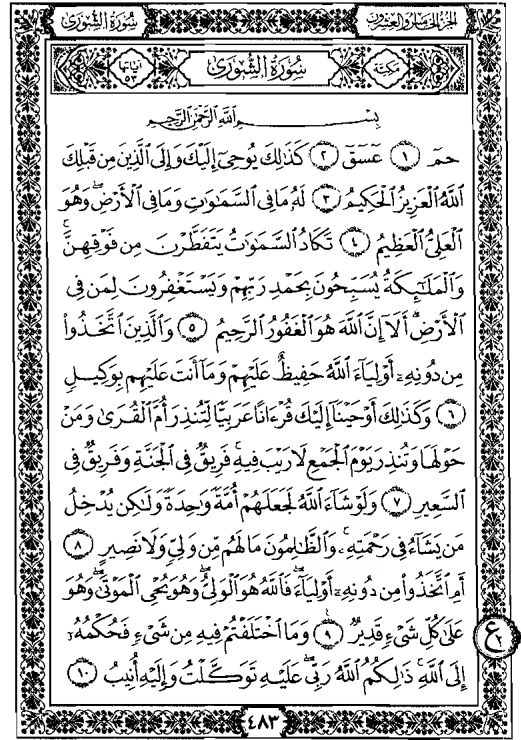 سُورَةُ الشُّورَىٰ
الجُزءُ الخَامِسُ وَالعِشْرُونَ
آيَاتُهَا ٥٣
سُورَةُ الشُّورَىٰ
مَكِّيَّة
بِسْمِ ٱللَّهِ ٱلرَّحْمَٰنِ ٱلرَّحِيمِ
حمٓ ١ عٓسٓقٓ ٢ كَذَٰلِكَ يُوحِىٓ إِلَيْكَ وَإِلَى ٱلَّذِينَ مِن قَبْلِكَ
ٱللَّهُ ٱلْعَزِيزُ ٱلْحَكِيمُ ٣ لَهُۥ مَا فِى ٱلسَّمَٰوَٰتِ وَمَا فِى ٱلْأَرْضِ ۖ وَهُوَ
ٱلْعَلِىُّ ٱلْعَظِيمُ ٤ تَكَادُ ٱلسَّمَٰوَٰتُ يَتَفَطَّرْنَ مِن فَوْقِهِنَّ ۚ
وَٱلْمَلَٰٓئِكَةُ يُسَبِّحُونَ بِحَمْدِ رَبِّهِمْ وَيَسْتَغْفِرُونَ لِمَن فِى
ٱلْأَرْضِ ۗ أَلَآ إِنَّ ٱللَّهَ هُوَ ٱلْغَفُورُ ٱلرَّحِيمُ ٥ وَٱلَّذِينَ ٱتَّخَذُوا۟
مِن دُونِهِۦٓ أَوْلِيَآءَ ٱللَّهُ حَفِيظٌ عَلَيْهِمْ وَمَآ أَنتَ عَلَيْهِم بِوَكِيلٍ
٦ وَكَذَٰلِكَ أَوْحَيْنَآ إِلَيْكَ قُرْءَانًا عَرَبِيًّا لِّتُنذِرَ أُمَّ ٱلْقُرَىٰ وَمَنْ
حَوْلَهَا وَتُنذِرَ يَوْمَ ٱلْجَمْعِ لَا رَيْبَ فِيهِ ۚ فَرِيقٌ فِى ٱلْجَنَّةِ وَفَرِيقٌ فِى
ٱلسَّعِيرِ ٧ وَلَوْ شَآءَ ٱللَّهُ لَجَعَلَهُمْ أُمَّةً وَٰحِدَةً وَلَٰكِن يُدْخِلُ
مَن يَشَآءُ فِى رَحْمَتِهِۦ ۚ وَٱلظَّٰلِمُونَ مَا لَهُم مِّن وَلِىٍّ وَلَا نَصِيرٍ ٨
أَمِ ٱتَّخَذُوا۟ مِن دُونِهِۦٓ أَوْلِيَآءَ ۖ فَٱللَّهُ هُوَ ٱلْوَلِىُّ وَهُوَ يُحْىِ ٱلْمَوْتَىٰ وَهُوَ
عَلَىٰ كُلِّ شَىْءٍ قَدِيرٌ ٩ وَمَا ٱخْتَلَفْتُمْ فِيهِ مِن شَىْءٍ فَحُكْمُهُۥٓ
إِلَى ٱللَّهِ ۚ ذَٰلِكُمُ ٱللَّهُ رَبِّى عَلَيْهِ تَوَكَّلْتُ وَإِلَيْهِ أُنِيبُ ١٠
ع
٢
٤٨٣